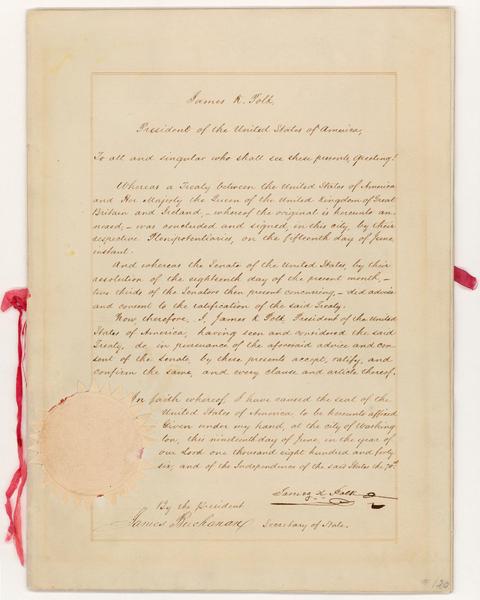 James K. Polk,
President of the United States of America,
To all and singular who shall see these presents, Greeting!
Whereas a Treaty between the United States of America
and Her Majesty the Queen of the United Kingdom of Great
Britain and Ireland, – whereof the original is hereunto an-
nexed, – was concluded and signed, in this city, by their
respective Plenipotentiaries, on the fifteenth day of June,
instant.
And whereas the Senate of the United States, by their
resolution of the eighteenth day of the present month, –
two thirds of the Senators then present concurring, – did advise
and consent to the ratification of the said Treaty.
Now, therefore, I, James K. Polk, President of the United
States of America, having seen and considered the said
Treaty, do, in pursuance of the aforesaid advice and con-
sent of the Senate, by these presents accept, ratify, and
confirm the same, and every clause and article thereof.
In faith whereof, I have caused the seal of the
United States of America to be hereunto affixed
Given under my hand, at the city of Washing
ton, this nineteenth day of June, in the year of
our Lord one thousand eight hundred and forty
six, and of the Independence of the said States the 70th.
James K. Polk
By the President
James Buchanan Secretary of State.
120